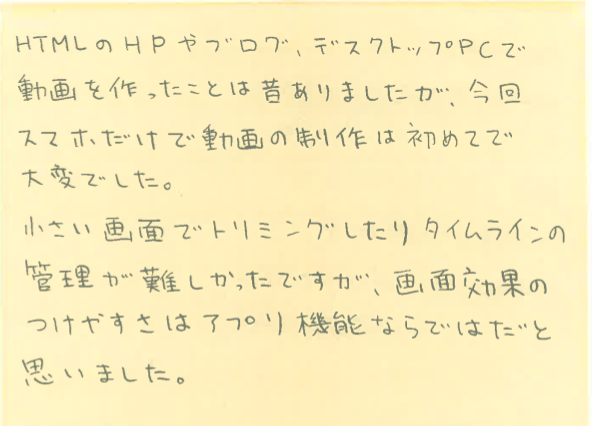 HTMLのHPやブログ、デスクトップPCで
動画を作ったことは昔ありましたが、今回
スマホだけで動画の制作は初めてで
大変でした。
小さい画面でトリミングしたりタイムラインの
管理が難しかったですが、画面効果の
つけやすさはアプリ機能ならではだと
思いました。